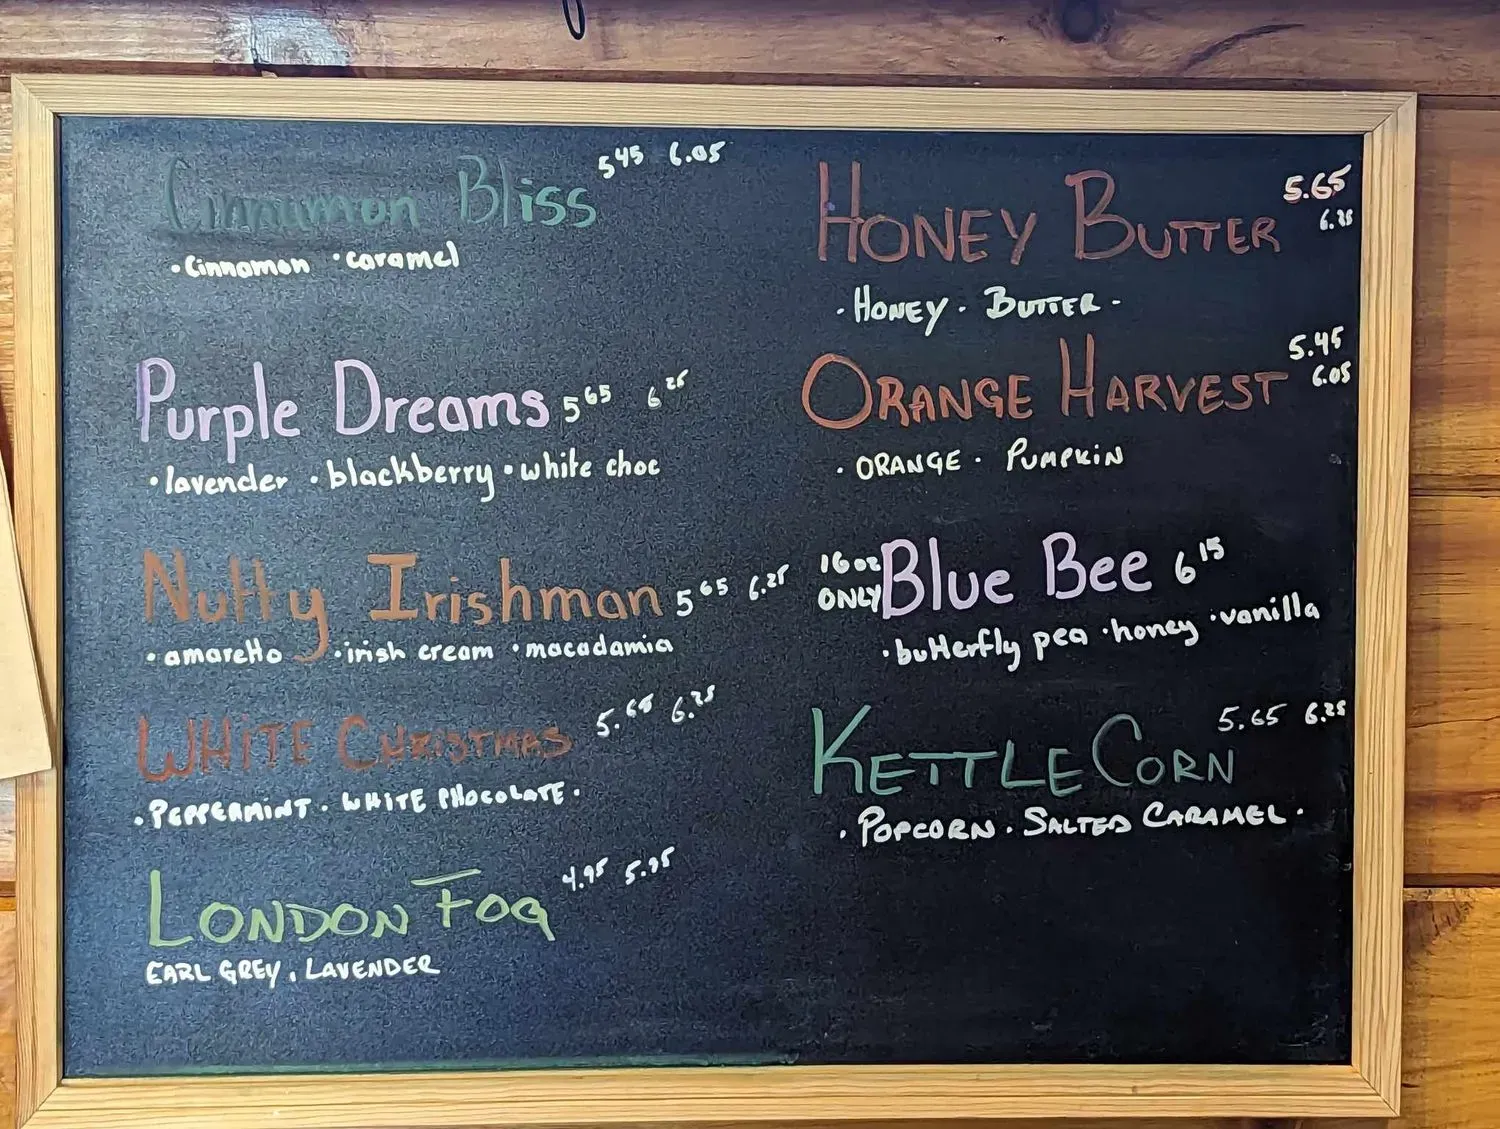 Cinnamon Bliss 5 45 6.05
· Cinnamon · caramel
Purple Dreams 5 65 6 25
· lavender · blackberry · white choc
Nutty Irishman 5 65 6.25
· amaretto · irish cream · macadamia
WHITE CHRISTMAS 5.65 6.25
· PEPPERMINT · WHITE CHOCOLATE ·
LONDON FOG 4.95 5.95
EARL GREY, LAVENDER
HONEY BUTTER 5.65
6.25
· HONEY · BUTTER ·
ORANGE HARVEST 5.45
6.05
· ORANGE · PUMPKIN
16oz
ONLY
Blue Bee 6 15
· butterfly pea · honey · vanilla
KETTLE CORN 5.65 6.25
· POPCORN · SALTED CARAMEL ·